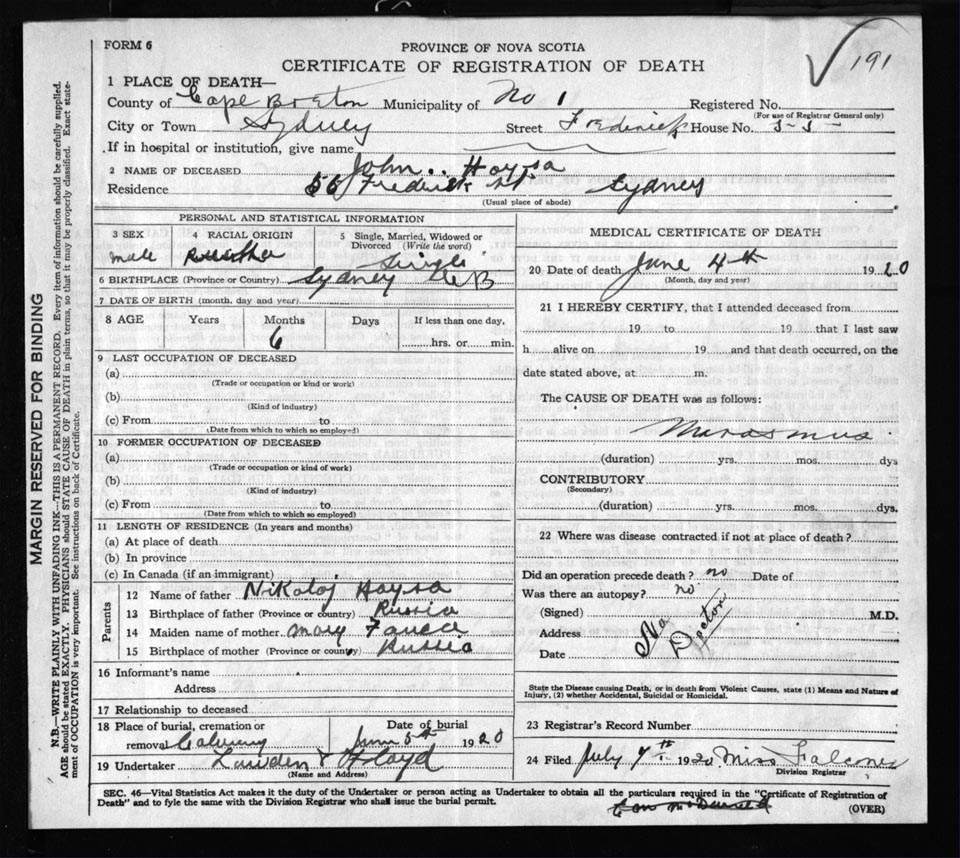 191
FORM 6
PROVINCE OF NOVA SCOTIA
CERTIFICATE OF REGISTRATION OF DEATH
1 PLACE OF DEATH—
County of Cape Breton Municipality of No 1 Registered No.
(For use of Registrar General only)
City or Town Sydney Street Frederick House No. 55
If in hospital or institution, give name
2 NAME OF DECEASED John Haysa
Residence 55 Frederick St Sydney
(Usual place of abode)
PERSONAL AND STATISTICAL INFORMATION
3 SEX 4 RACIAL ORIGIN 5 Single, Married, Widowed or Divorced (Write the word)
male Single
6 BIRTHPLACE (Province or Country) Sydney CB
7 DATE OF BIRTH (month, day and year)
8 AGE Years Months Days If less than one day,
6 hrs. or min.
9 LAST OCCUPATION OF DECEASED
(a)
(Trade or occupation or kind or work)
(b)
(Kind of industry)
(c) From to
(Date from which to which so employed)
10 FORMER OCCUPATION OF DECEASED
(a)
(Trade or occupation or kind of work)
(b)
(Kind of industry)
(c) From to
(Date from which to which so employed)
11 LENGTH OF RESIDENCE (In years and months)
(a) At place of death
(b) In province
(c) In Canada (if an immigrant)
Parents
12 Name of father Nikolaj Haysa
13 Birthplace of father (Province or country) Russia
14 Maiden name of mother Mary
15 Birthplace of mother (Province or country) Russia
16 Informant's name
Address
17 Relationship to deceased
18 Place of burial, cremation or Date of burial
removal Calvary June 5th 1920
19 Undertaker Lowden & Floyd
(Name and Address)
MEDICAL CERTIFICATE OF DEATH
20 Date of death June 4th 1920
(Month, day and year)
21 I HEREBY CERTIFY, that I attended deceased from
19 to 19 that I last saw
h alive on 19 and that death occurred, on the
date stated above, at m.
The CAUSE OF DEATH was as follows:
Marasmus
(duration) yrs. mos. dys
CONTRIBUTORY
(Secondary)
(duration) yrs. mos. dys.
22 Where was disease contracted if not at place of death?
Did an operation precede death? no Date of
Was there an autopsy? no
(Signed) M.D.
Address No Doctor
Date
State the Disease causing Death, or in death from Violent Causes, state (1) Means and Nature of
Injury, (2) whether Accidental, Suicidal or Homicidal.
23 Registrar's Record Number
24 Filed July 7th 1920 Miss Falconer
Division Registrar
SEC. 46—Vital Statistics Act makes it duty of the Undertaker or person acting as Undertaker to obtain all the particulars required in the "Certificate of Registration of
Death" and to fyle the same with the Division Registrar who shall issue the burial permit.
(OVER)
MARGIN RESERVED FOR BINDING
N.B.—WRITE PLAINLY WITH UNFADING INK—THIS IS A PERMANENT RECORD. Every item of information should be carefully supplied.
AGE should be stated EXACTLY. PHYSICIANS should STATE CAUSE OF DEATH in plain terms, so that it may be properly classified. Exact state-
ment of OCCUPATION is very important. See instructions on back of Certificate.